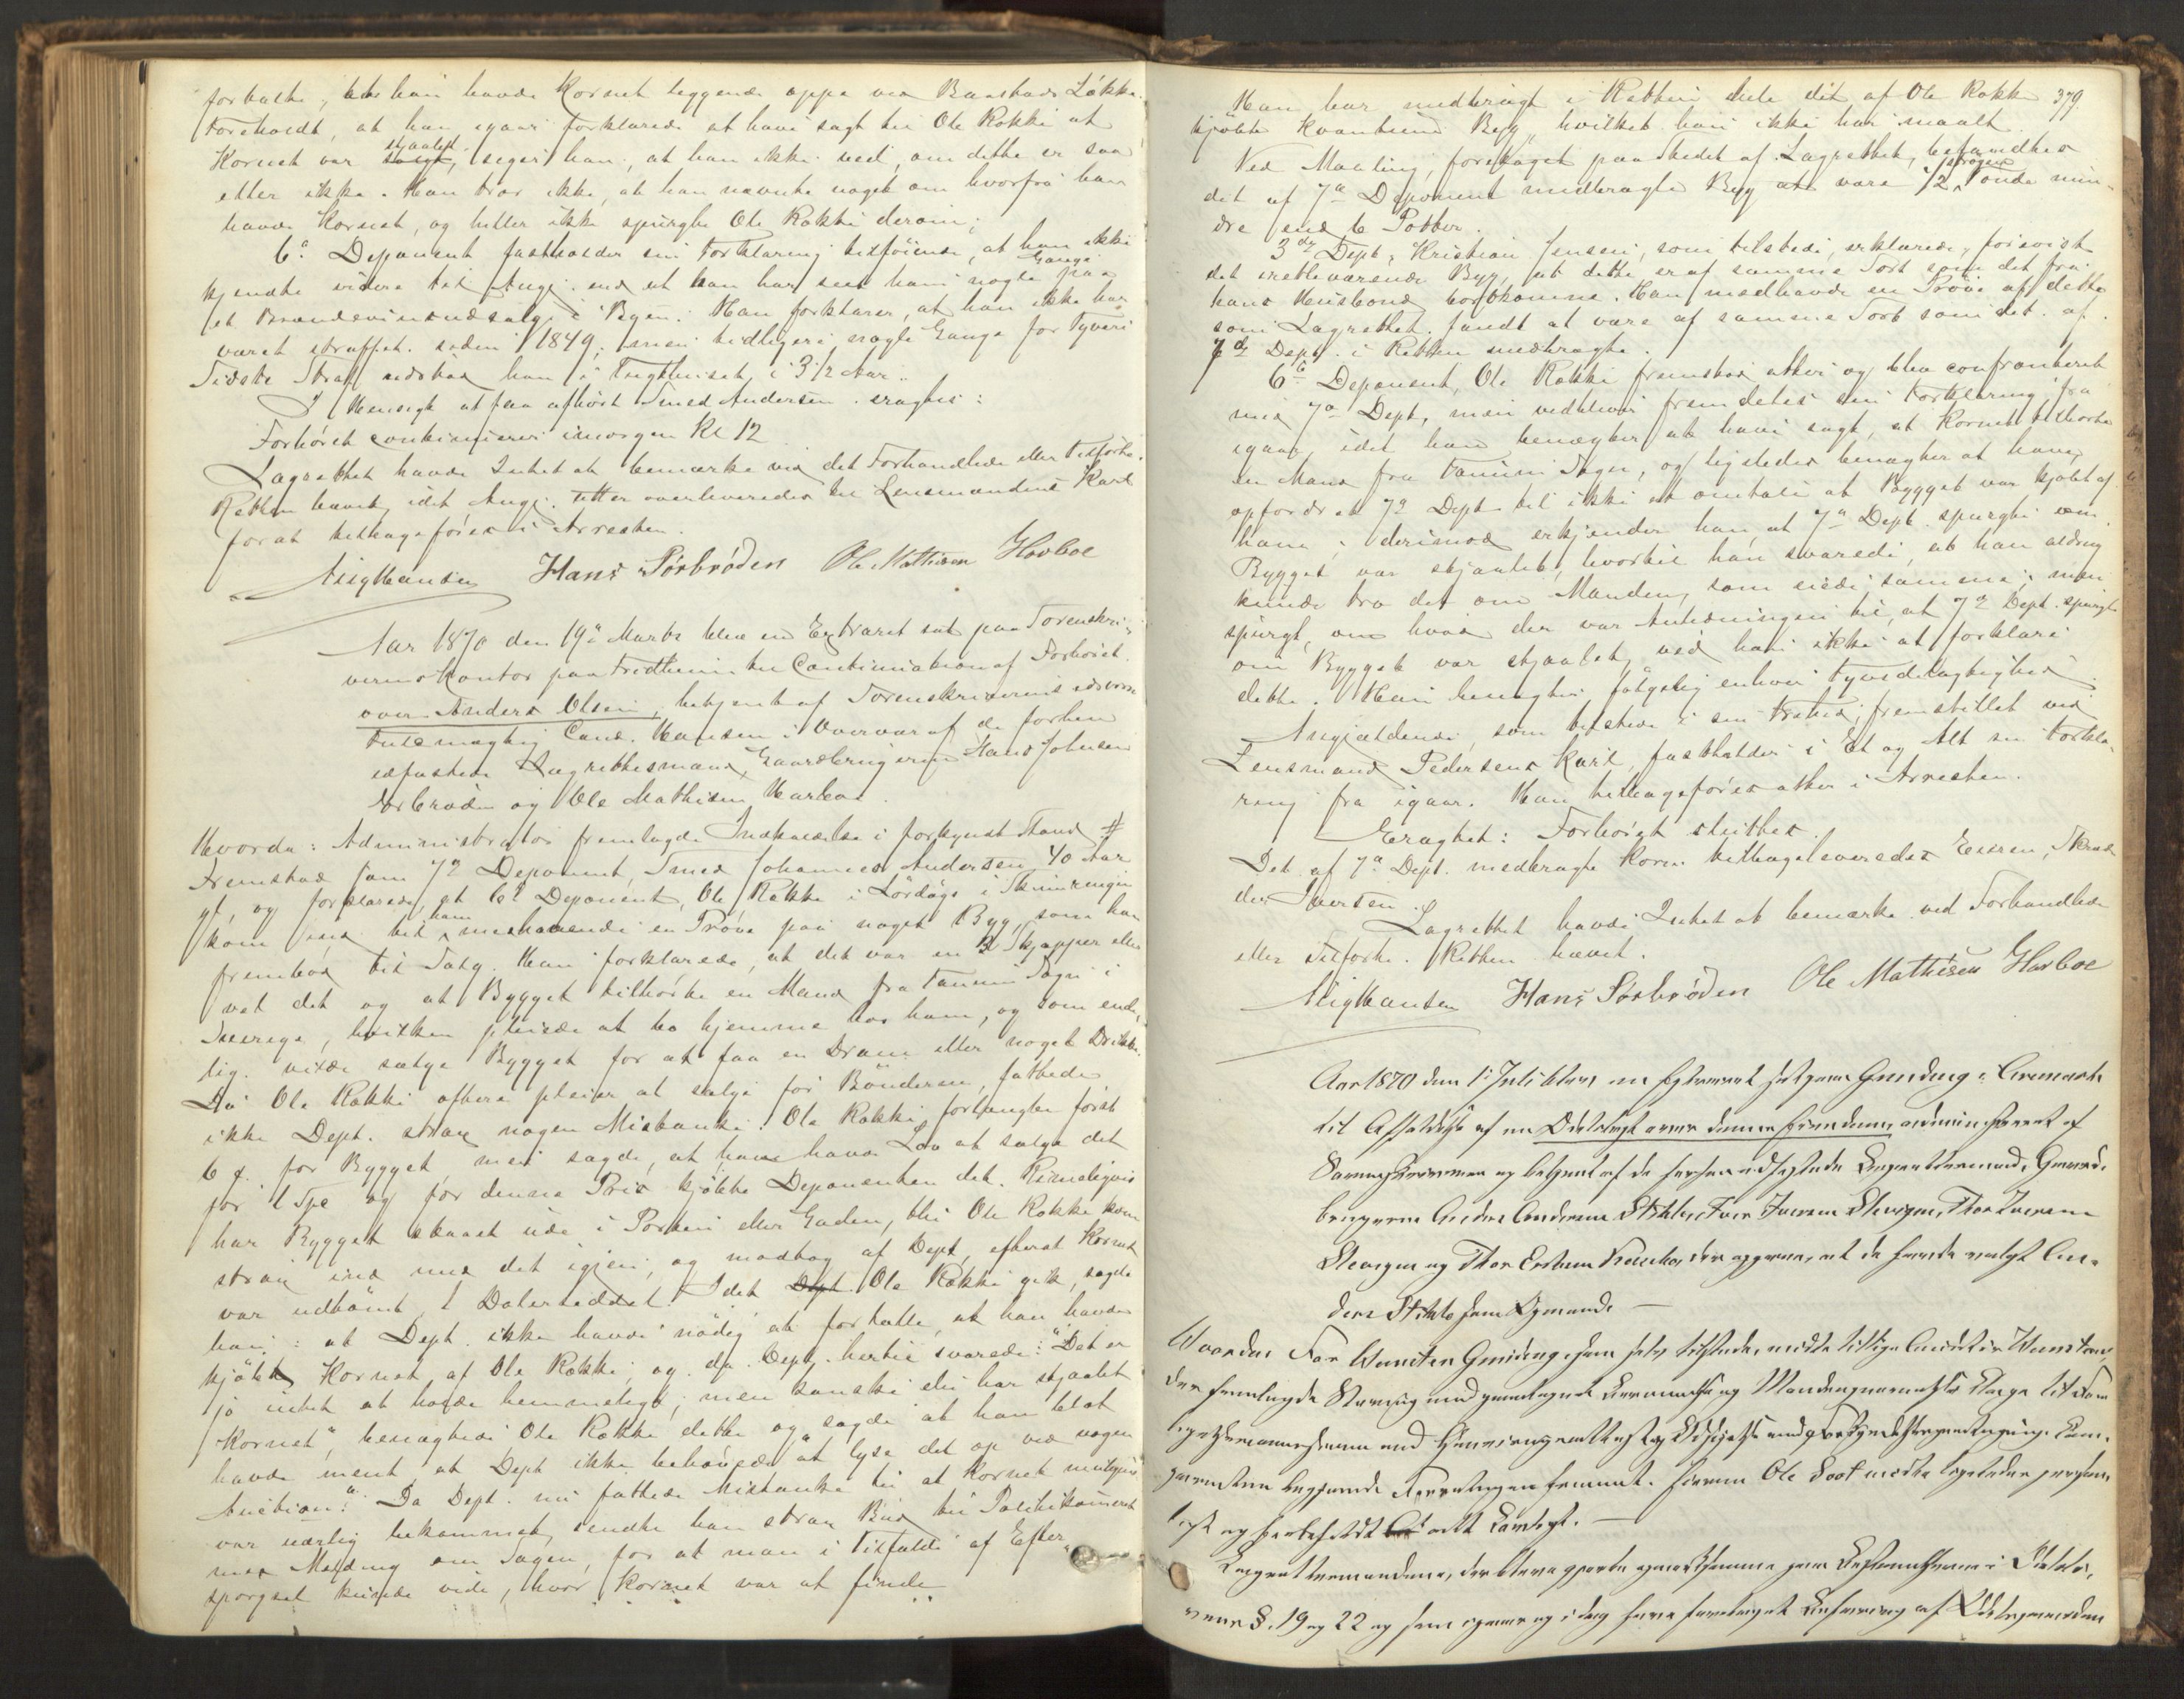 fortalte, at han havde Kornet liggende oppe ved Baastads Løkke.
Foreholdt, at han igaar forklarede at have sagt til Ole Rokke at
Kornet var stjaalet, siger han, at han ikke ved, om dette er saa
eller ikke. Han tror ikke, at han nævnte noget om hvorfra han
havde Kornet, og heller ikke spurgte Ole Rokke derom;
6te Deponent fastholder sin Forklaring tilføiende, at han ikke
kjendte videre til Angj. end at han har seet ham nogle Gange paa
et Brændevinsudsalg i Byen. Han forklarer, at han ikke har
været straffet siden 1849, men tidligere nogle Gange for Tyveri
Sidste Straf udstod han i Tugthuset i 3 1/2 Aar.
I Hensigt at faa afhørt Smed Andersen eragtes:
Forhøret continuerer imorgen Kl 12
Lagrettet havde Intet at bemærke ved det Forhandlede eller Tilførte.
Retten hævet, idet Angj. atter overleveredes til Lensmandens Karl
for at tilbageføres i Arresten.
Hans Sørbrøden Ole Mathisen Harboe
Aar 1870 den 19de Marts blev en Extraret sat paa Sorenskri-
verens Kontor paa Fredheim til Continuation af Forhøret
over Anders Olsen, betjent af Sorenskriverens edsvorne
Fuldmægtig Cand. Hansen i Overvær af de forhen
edfæstede Lagrettesmænd, Gaardbrugerne Hans Johnsen
Sørbrøden og Ole Mathisen Harboe.
Hvorda: Administrator fremlagde Indkaldelse i forkyndt Stand #
Fremstod som 7de Deponent, Smed Johannes Andersen 40 Aar
gl, og forklarede, at 6te Deponent, Ole Rokke i Lørdags i Skumringen
kom ind til ham medhavende en Prøve paa noget Byg, som han
frembød til Salg. Han forklarede, at det var en 2 Skjepper eller
vel det og at Bygget tilhørte en Mand fra Tanum Sogn i
Sverige, hvilken pleiede at bo hjemme hos ham, og som ende-
lig vilde sælge Bygget for at faa en Dram eller noget Drikke.
Da Ole Rokke oftere pleier at sælge for Bønderne, fattede
ikke Dept. strax nogen Mistanke. Ole Rokke forlangte først
6 ƒ for Bygget men sagde, at han havde Lov at sælge det
for 1 Spe og for denne Pris kjøbte Deponenten det. Rimeligvis
har Bygget staaet ude i Porten eller Gaden, thi Ole Rokke kom
strax ind med det igjen, og modtog af Dept, efterat Kornet
var udtømt, 1 Dalerseddel. Idet Dept. Ole Rokke gik, sagde
han: at Dept. ikke havde nødig at fortælle, at han havde
kjøbt Kornet af Ole Rokke, og da Dept. hertil svarede: "Det er
jo intet at holde hemmeligt; men kanske du har stjaalet
Kornet", benægtede Ole Rokke dette og sagde at han blot
havde ment, at Dept ikke behøvede "at lyse det op ved nogen
Auction". Da Dept. nu fattede Mistanke til at Kornet muligens
var uærlig bekommet, sendte han strax Bud til Politikamret
med Melding om Sagen, for at man i Tilfælde af Efter-
spørgsel kunde vide, hvor Kornet var at finde
379
Han har medbragt i Retten hele det af Ole Rokke
kjøbte Kvantum Byg, hvilket han ikke har maalt
Ved Maaling, foretaget paa Stedet af Lagrettet, befandtes
det af 7de Deponent medbragte Byg at være 1/2 strøgen Tønde min-
dre end 6 Potter.
3die Dept, Kristian Jensen, som tilstede, erklærede, forevist
det iretteværende Byg, at dette er af samme Sort som det fra
hans Husbond bortkomne. Han medhavde en Prøve af dette
som Lagrettet fandt at være af samme Sort som det af
7de Dept. i Retten medbragte.
6te Deponent, Ole Rokke fremstod atter og blev confronteret
med 7de Dept, men vedbliver fremdeles sin Forklaring fra
igaar, idet han benægter at have sagt, at Kornet tilhørte
en Mand fra Tanum Sogn, og ligeledes benægter at have
opfordret 7de Dept til ikke at omtale at Bygget var kjøbt af
ham; derimod erkjender han, at 7de Dept. spurgte om
Bygget var stjaalet, hvortil han svarede, at han aldrig
kunde tro det om Manden, som eiede samme; men
spurgt, om hvad der var Anledningen til, at 7de Dept. spurgte
om Bygget var stjaalet, ved han ikke at forklare
dette. Han benægter følgelig enhver Tyvsdelagtighed.
Angjældende, som tilstede i sin Frihed, fremstillet ved
Lensmand Pedersens Karl, fastholder i Et og Alt sin Forkla-
ring fra igaar. Han tilbageføres atter i Arresten.
Eragtet: Forhøret sluttet.
Det af 7de Dept. medbragte Korn tilbageleveredes Eieren, Skræd
der Iversen.
Lagrettet havde Intet at bemærke ved Forhandlede
eller Tilførte. Retten hævet.
Hans Sørbrøden Ole Mathisen Harboe
Aar 1870 den 1 Juli blev en Extraret sat paa Gunding i Aremark
til Afholdelse af en Odelstægt over denne Eiendom, administreret af
Sorenskriveren og betjent af de forhen edfæstede Lagrettesmænd, Gaard-
brugerne Anders Andersen Stikle, Iver Iversen Skovgen, Thor Iversen
Skovgen og Thor, der opgave, at de havde valgt An-
ders Stikle som Formand. —
Hvorda: For
lagt og forbeholdt alt Lovligt. —
Lagrettesmændene, der bleve gjorte opmærksomme paa Bestemmelserne i Odelslo-
vens §. 19 og 22 og som igaar og idag have foretaget Befaring af Odelsgaarden